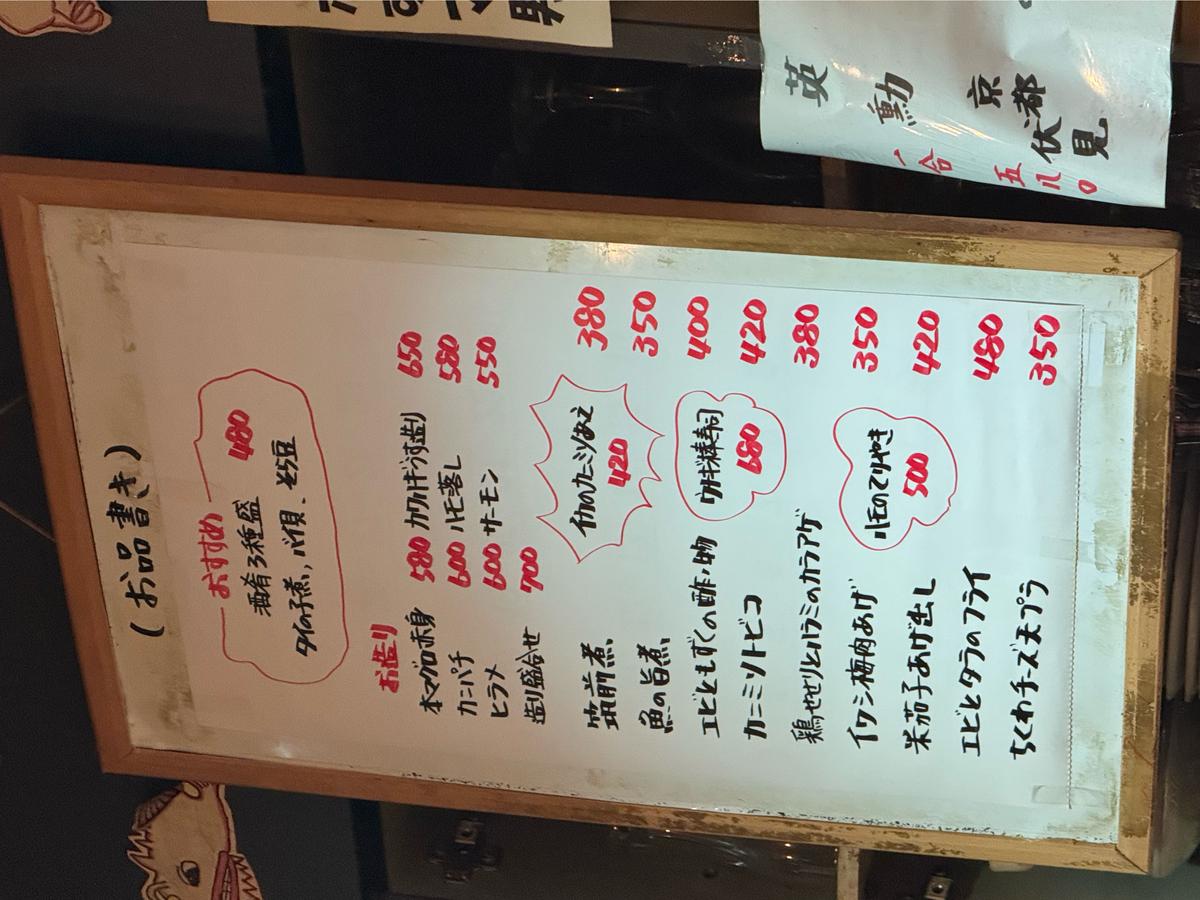 (お品書き)
おすすめ
酒肴3種盛 480
タイの子煮,バイ貝、そら豆
お造り
本マグロ赤身 580 カワハギうす造り 650
カンパチ 600 ハモ落し 580
ヒラメ 600 サーモン 550
造り盛合せ 700
イカのカニミソあえ
420
筑前煮 380
魚の旨煮 350
エビともずくの酢ノ物 400
ウナギ棒寿司
680
カニミソトビコ 420
鶏せせりとハラミのカラアゲ 380
イワシ梅肉あげ 350
ハモのてりやき
500
米茄子あげ出し 420
エビとタラのフライ 480
ちくわチーズ天プラ 350
英勳
京都伏見
一合
五八〇